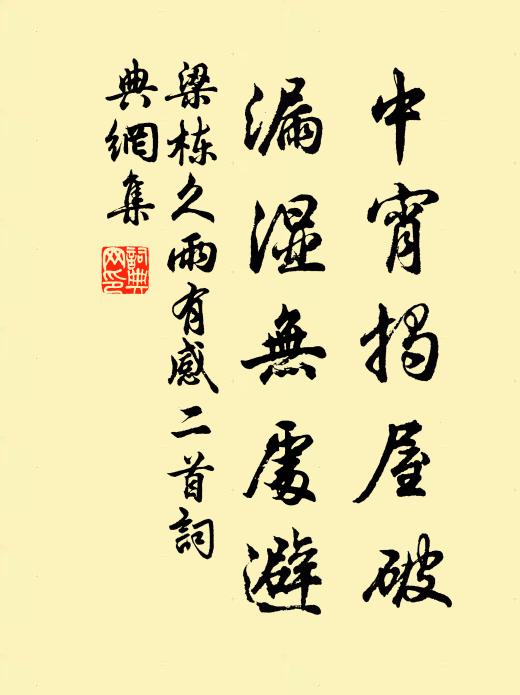 中宵揭屋破
漏濕無處避
梁棟久雨有感二首詞
典網集
詞典
网印